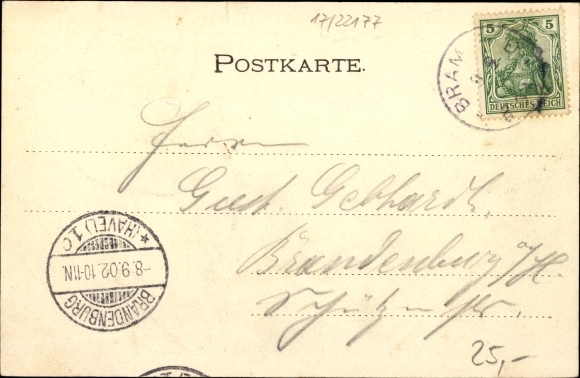 17/22177
POSTKARTE.
5 5
DEUTSCHES REICH
BRAM
Herrn
Gust. Gebhardt,
Brandenburg a/H.
* (HAVEL) 1 c
-8.9.02.10-11N.
BRANDENBURG
25,-